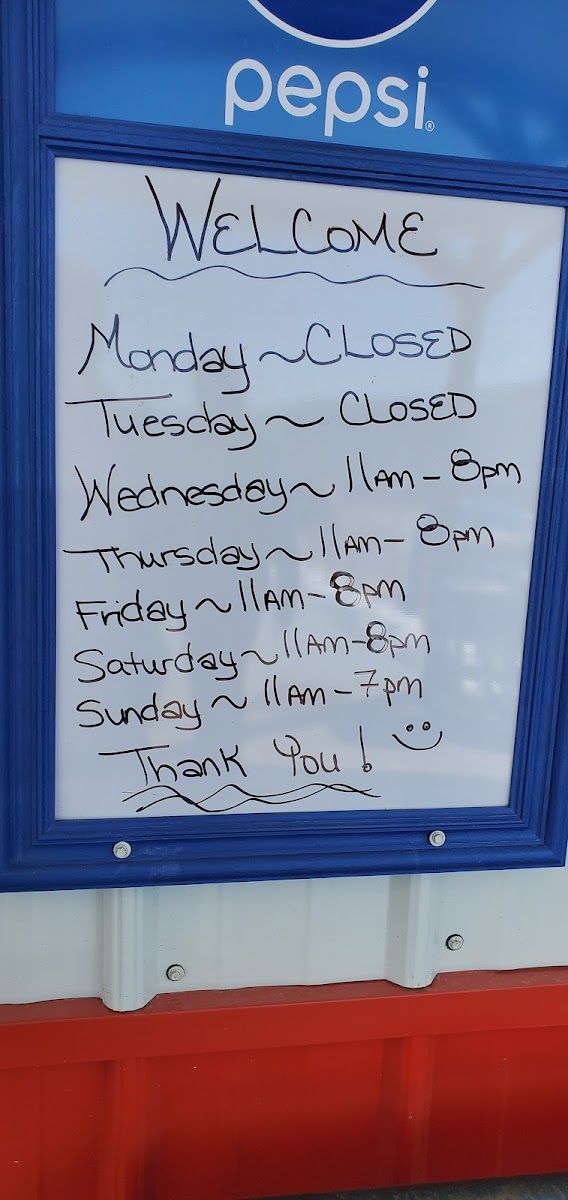 pepsi®
WELCOME
Monday ~ CLOSED
Tuesday ~ CLOSED
Wednesday ~ 11AM - 8pm
Thursday ~ 11AM - 8pm
Friday ~ 11AM - 8pm
Saturday ~ 11AM - 8pm
Sunday ~ 11AM - 7pm
Thank You!